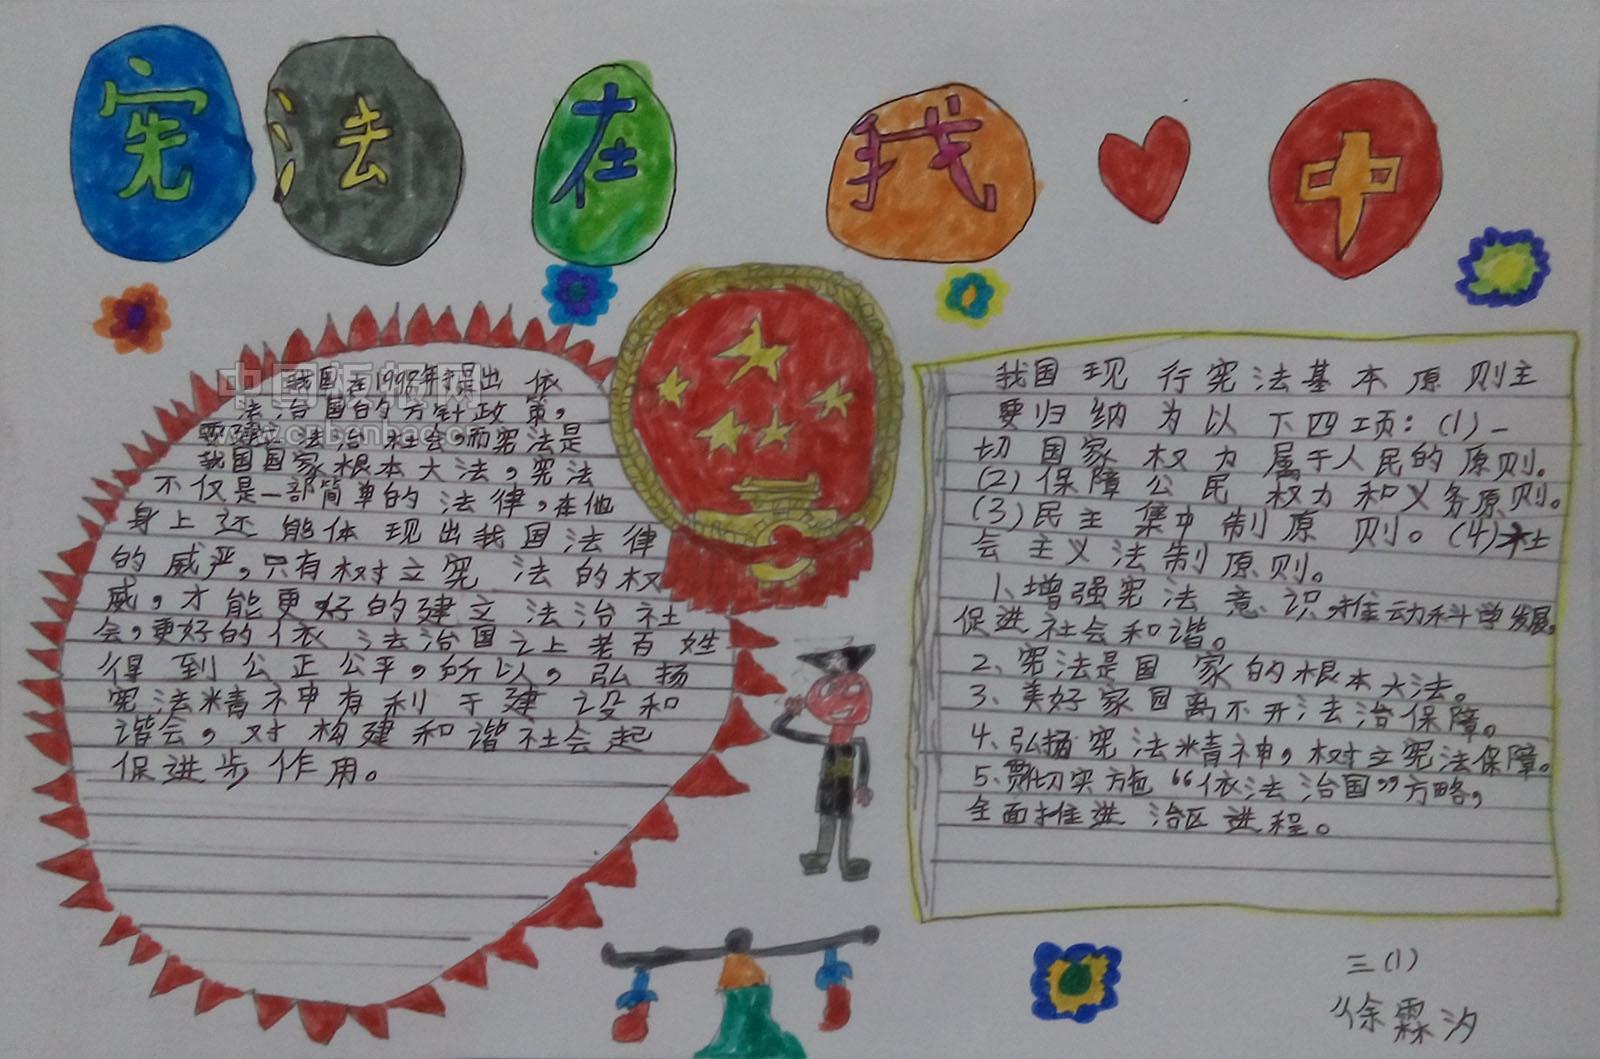 宪法在我中
我国在1997年提出 依
法治国的方针政策，
要建立法治社会，而宪法是
我国国家根本大法，宪法
不仅是一部简单的法律，在他
身上还能体现出我国法律
的威严，只有树立宪法的权
威，才能更好的建立法治社
会，更好的依法治国之上老百姓
得到公正公平，所以，弘扬
宪法精神有利于建设和
谐会，对构建和谐社会起
促进步作用。
我国现行宪法基本原则主
要归纳为以下四项：(1)一
切国家权力属于人民的原则。
(2)保障公民权力和义务原则。
(3)民主集中制原则。(4)社
会主义法制原则。
1、增强宪法意识，推动科学发展，
促进社会和谐。
2、宪法是国家的根本大法。
3、美好家园离不开法治保障。
4、弘扬宪法精神，树立宪法保障。
5、切实施“依法治国”方略，
全面推进治区进程。
三(1)
徐霖汐
中国板报网
www.cnbanbao.cn